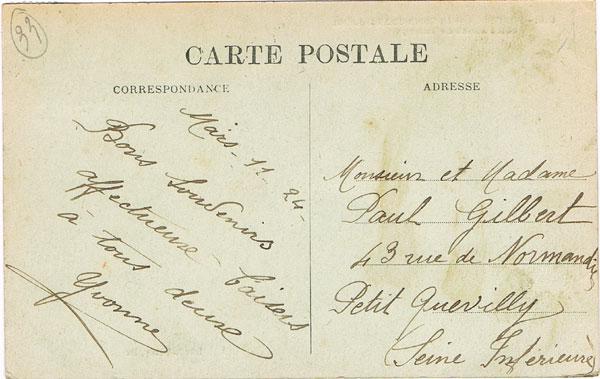 33
CARTE POSTALE
CORRESPONDANCE
ADRESSE
Mars - 11 - 24 -
Bons Souvenirs
affectueuse - baisers
à tous deux
Yvonne
Monsieur et Madame
Paul Gilbert
43 rue de Normandie
Petit Quevilly
Seine Inférieure